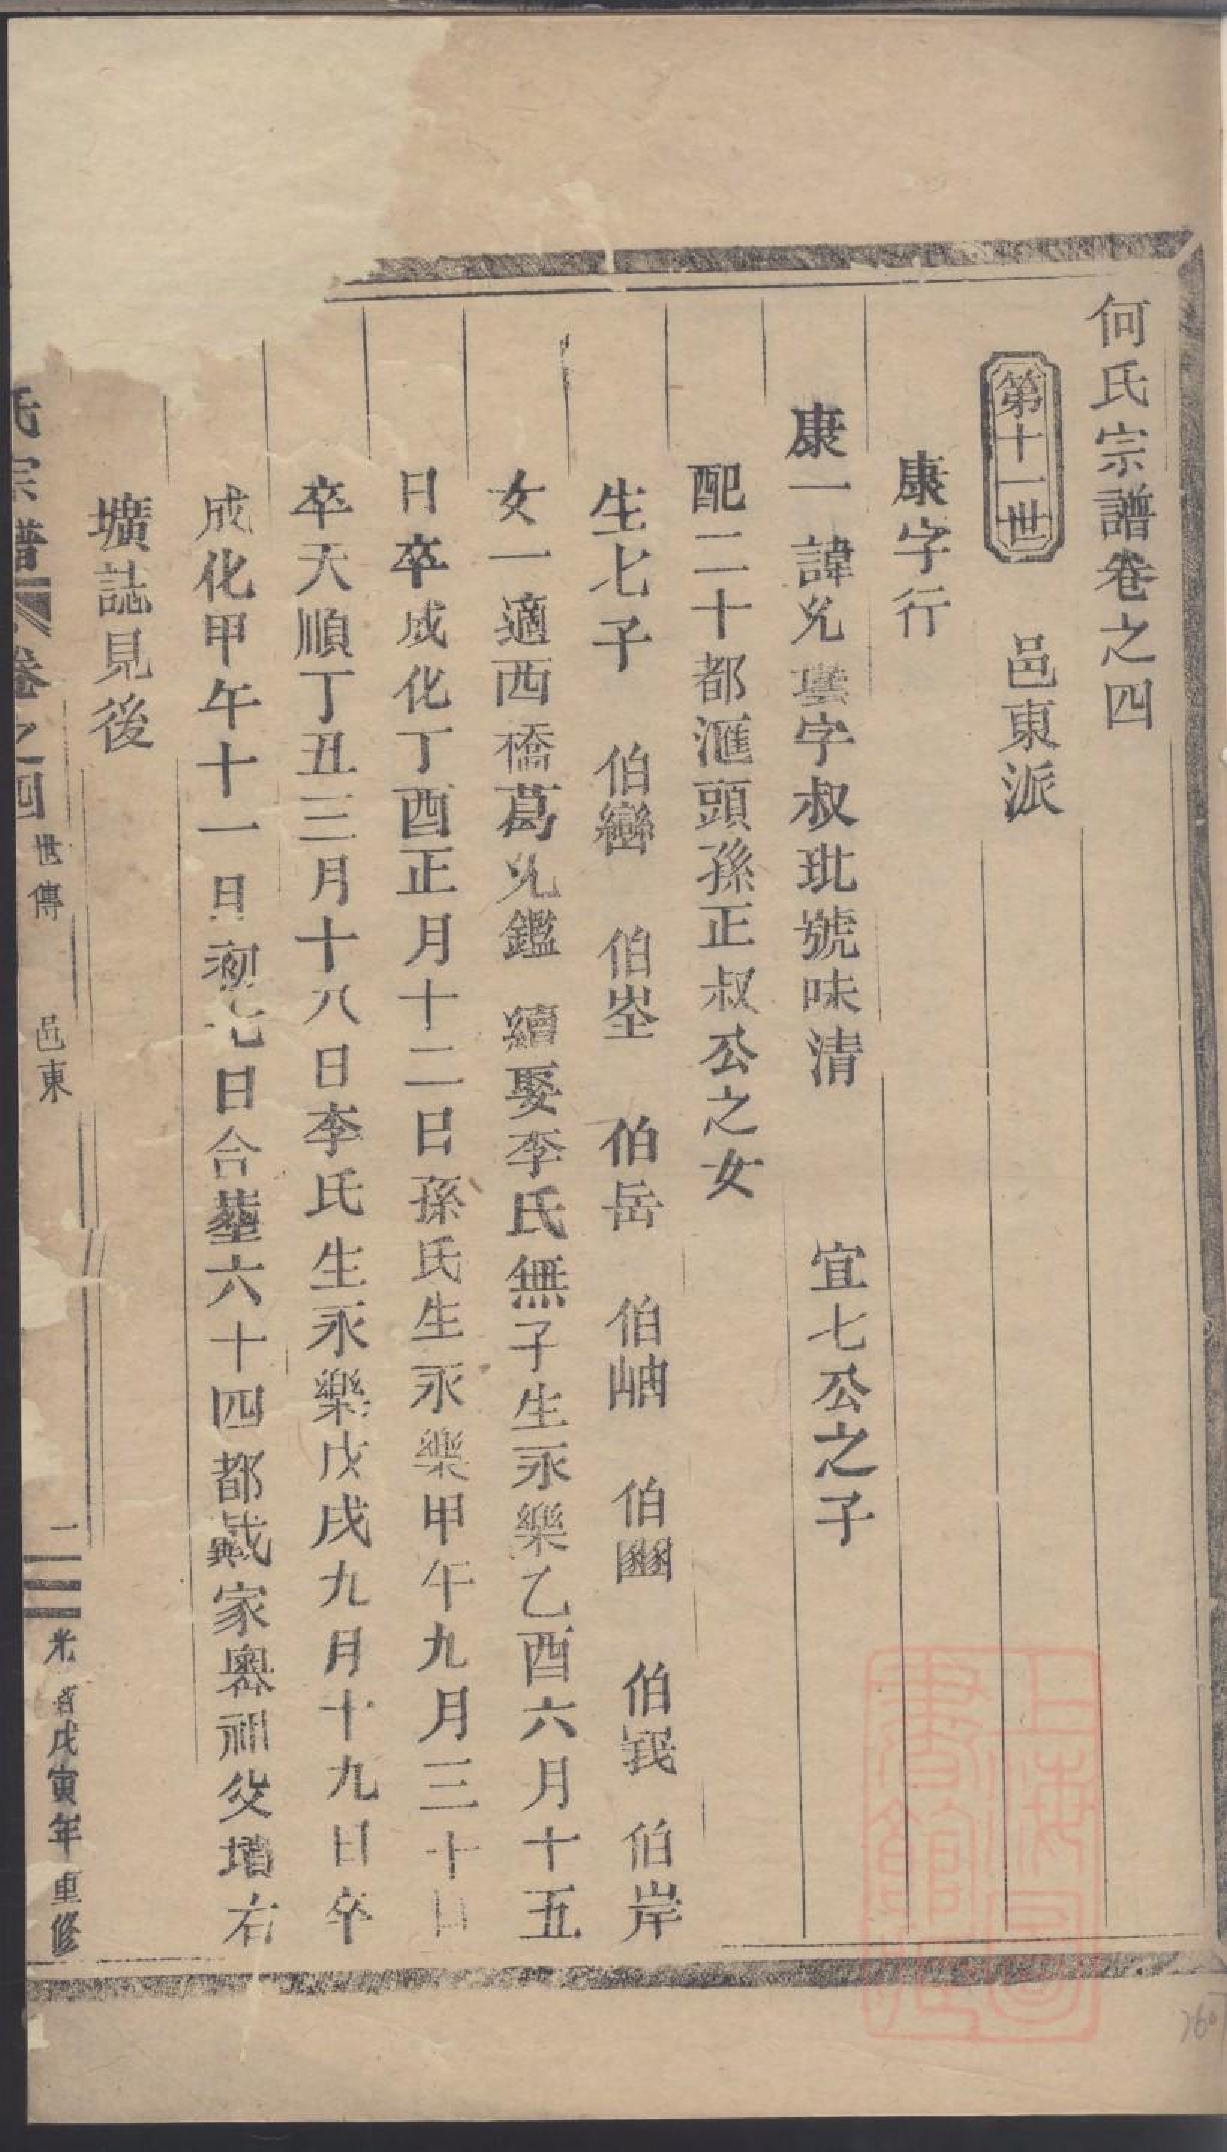 何氏宗譜卷之四
第十一世 邑東派
康字行
康一諱允字叔玭號味清 宜七公之子
配二十都滙頭孫正叔公之女
生七子 伯巒 伯峑 伯岳 伯岫 伯豳 伯 伯岸
女一適西橋葛允鑑 續娶李氏無子生永樂乙酉六月十五
日卒成化丁酉正月十二日孫氏生永樂甲午九月三十日
卒天順丁丑三月十八日李氏生永樂戊戌九月十九日卒
成化甲午十一月初七日合塟六十四都戴家嶴祖父墳右
壙誌見後
氏宗譜 卷之四 世傳 邑東 二 光緒戊寅年重修
上海圖書館藏